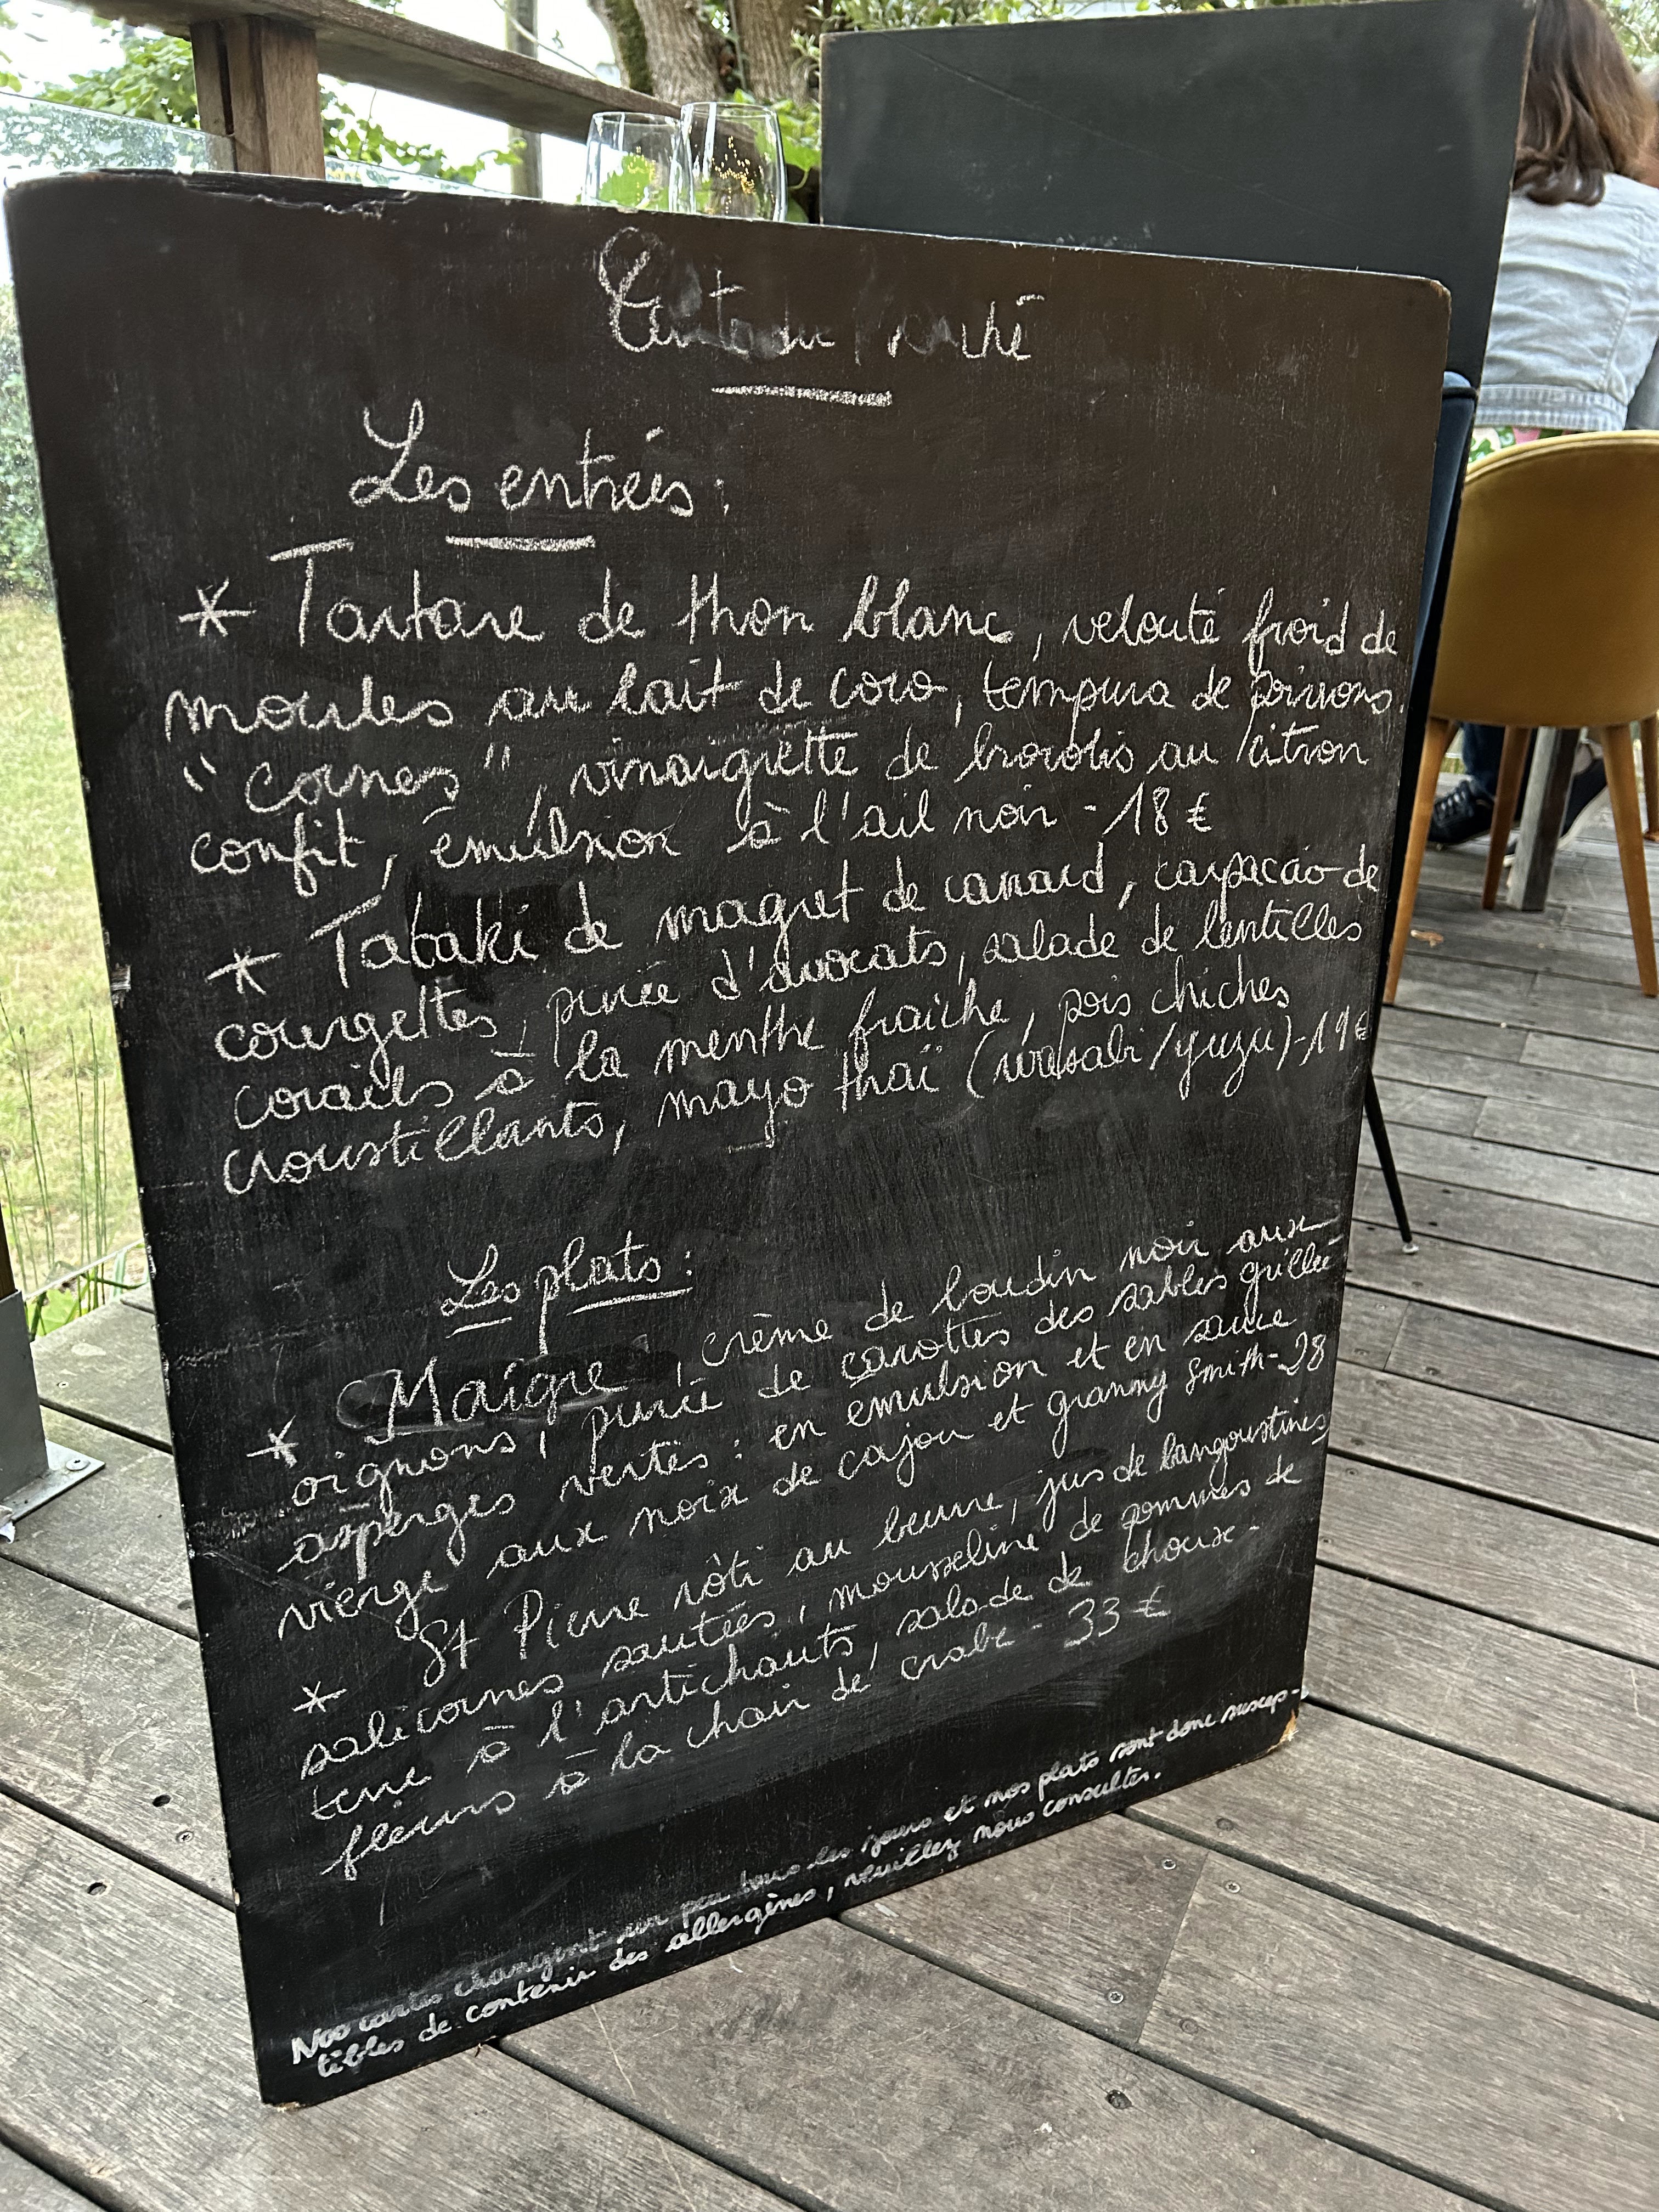 Les entrées :
* Tartare de thon blanc, velouté froid de
moules au lait de coco, tempura de poivrons
"cornes", vinaigrette de brocolis au citron
confit, émulsion à l'ail noir - 18 €
* Tataki de magret de canard, carpaccio de
courgettes, purée d'avocats, salade de lentilles
corails à la menthe fraîche, pois chiches
croustillants, mayo thaï (wasabi/yuzu) - 19 €
Les plats :
* Maigre, crème de boudin noir aux
oignons, purée de carottes des sables grillée
asperges vertes : en émulsion et en sauce
vierge aux noix de cajou et granny Smith - 28
* St Pierre rôti au beurre, jus de langoustines,
salicornes sautées, mousseline de pommes de
terre à l'artichauts, salade de choux-
fleurs à la chair de crabe - 33 €
Nos cartes changent un peu tous les jours et nos plats sont donc suscep-
tibles de contenir des allergènes, veuillez nous consulter.